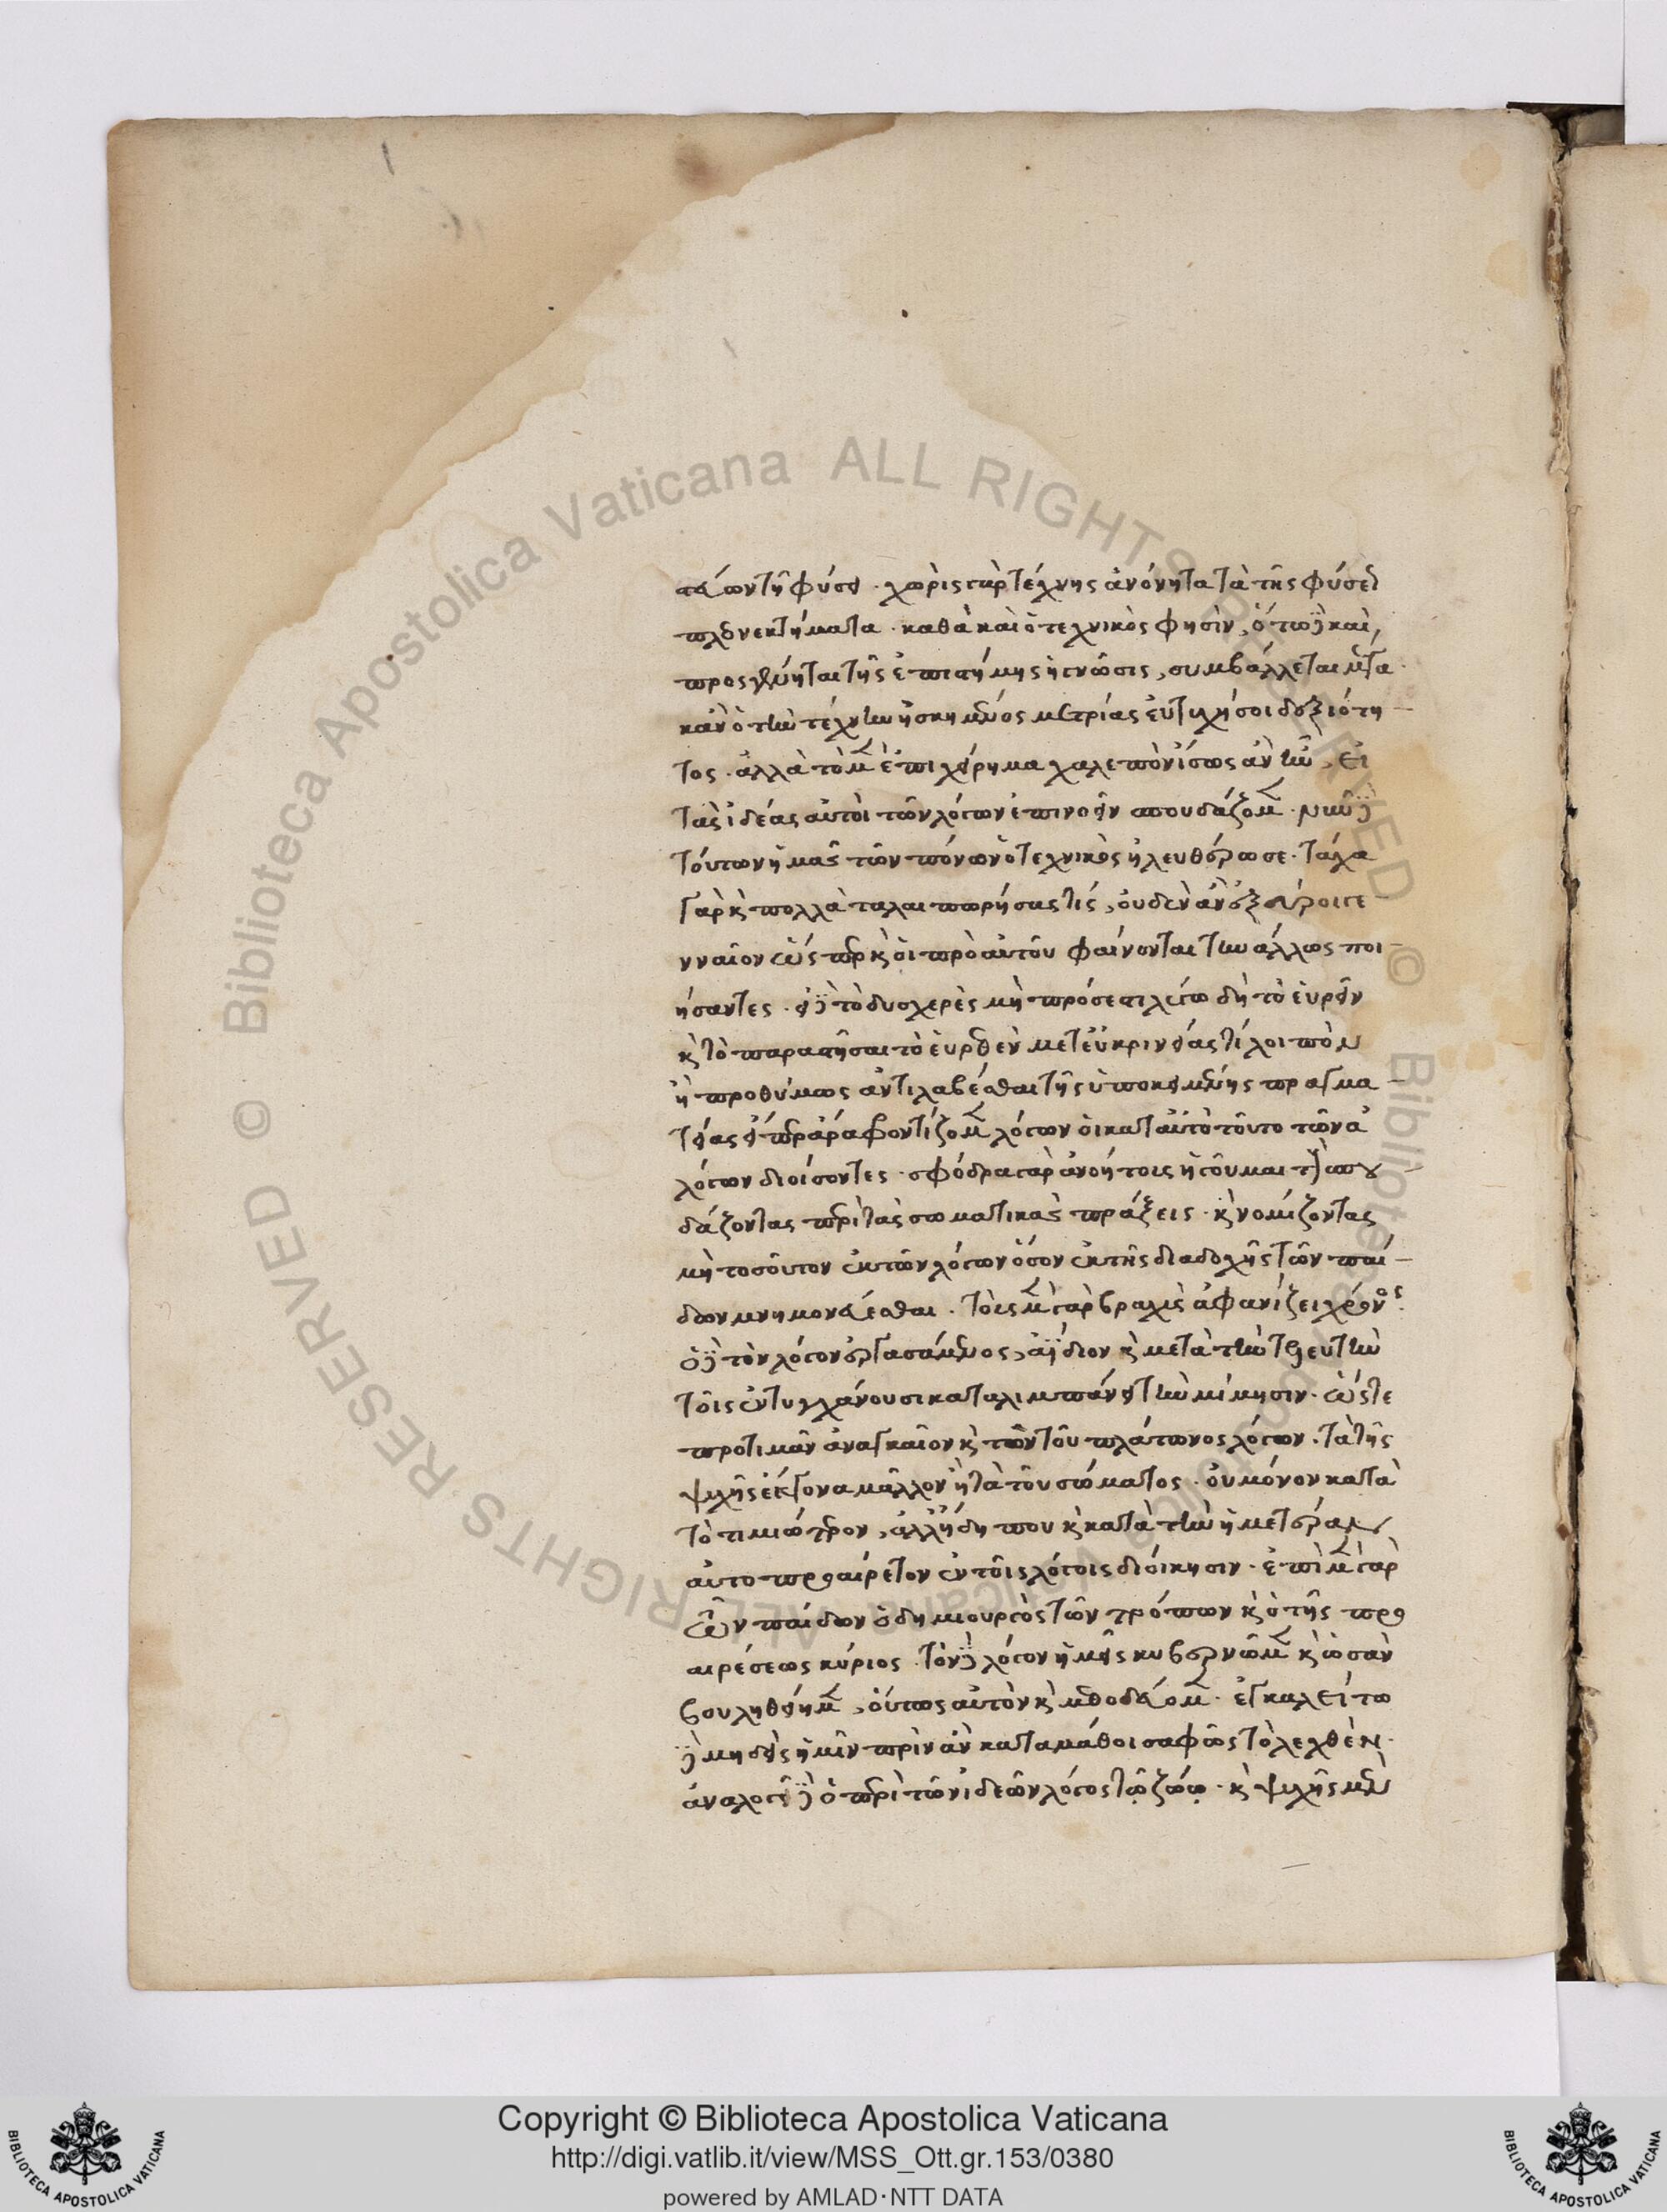 στεύων τῇ φύσει · χωρὶς γὰρ τέχνης ἀνόνητα τὰ τῆς φύσεως
πλεονεκτήματα · καθὰ καὶ ὁ τεχνικὸς φησὶν, ὅτω δὲ καὶ,
προσγένηται τῆς ἐπιστήμης ἡ γνῶσις, συμβάλλεται
κἂν ὁ τὴν τέχνην ἠσκημένος μετρίας εὐτυχήσοι δεξιότη-
τος · ἀλλὰ τὸ μὲν ἐπιχείρημα χαλεπὸν ἴσως ἂν ἦν, εἰ
τὰς ἰδέας αὐτοὶ τῶν λόγων ἐπινοεῖν σπουδάζομεν · νῦν δὲ
τούτων ἡμᾶς τῶν πόνων ὁ τεχνικὸς ἠλευθέρωσε · τάχα
γὰρ καὶ πολλὰ ταλαιπωρήσας τίς, οὐδὲν ἂν ἐξεύροι γε
νναῖον ὥσπερ καὶ οἱ πρὸ αὐτοῦ φαίνονται τὴν ἄλλως ποι-
ήσαντες · εἰ δὲ τὸ δυσχερὲς μὴ πρόσεστι λέγω δὴ τὸ εὑρεῖν
καὶ τὸ παραστῆσαι τὸ εὑρεθὲν μετ εὐκρινείας τί λοιπὸν
ἢ προθύμως ἀντιλαβέσθαι τῆς ὑποκειμένης πραγμα-
τείας εἴπερ ἄρα φροντίζομεν λόγων οἱ κατ αὐτὸ τοῦτο τῶν ἀ
λόγων διοίσοντες · σφόδρα γὰρ ἀνοήτους ἡγοῦμαι τοὺς σπου
δάζοντας περὶ τὰς σωματικὰς πράξεις · καὶ νομίζοντας
μὴ τοσοῦτον ἐκ τῶν λόγων ὅσον ἐκ τῆς διαδοχῆς τῶν παί-
δων μνημονεύεσθαι · τοῖς μὲν γὰρ βραχὺς ἀφανίζει χρόνος ·
ὁ δὲ τὸν λόγον ἐργασάμενος, ἀΐδιον καὶ μετὰ τὴν τελευτὴν
τοῖς ἐντυγχάνουσι καταλιμπάνει τὴν μίμησιν · ὥστε
προτιμᾶν ἀναγκαῖον κἀκ τῶν τοῦ πλάτωνος λόγων · τὰ τῆς
ψυχῆς ἔκγονα μᾶλλον ἢ τὰ τοῦ σώματος · οὐ μόνον κατὰ
τὸ τιμιώτερον, ἀλλ ἤδη που καὶ κατὰ τὴν ἡμετέραν
αὐτοπροαίρετον ἐν τοῖς λόγοις διοίκησιν · ἐπὶ μὲν γὰρ
ὧν παίδων ὁ δημιουργὸς τῶν τρόπων καὶ ὁ τῆς προ
αιρέσεως κύριος · τὸν δὲ λόγον ἡμεῖς κυβερνῶμεν καὶ ὡς ἂν
βουληθείημεν, οὕτως αὐτὸν καὶ μεθοδεύομεν · ἐγκαλείτω
δὲ μηδεὶς ἡμῖν πρὶν ἂν καταμάθοι σαφῶς τὸ λεχθὲν ·
ἀναλογεῖ δὲ ὁ περὶ τῶν ἰδεῶν λόγος τῷ ζώῳ · καὶ ψυχῆς μὲν
Copyright © Biblioteca Apostolica Vaticana
http://digi.vatlib.it/view/MSS_Ott.gr.153/0380
powered by AMLAD·NTT DATA
BIBLIOTECA APOSTOLICA VATICANA
BIBLIOTECA APOSTOLICA VATICANA
© Biblioteca Apostolica Vaticana ALL RIGHTS RESERVED
© Biblioteca Apostolica Vaticana ALL RIGHTS RESERVED